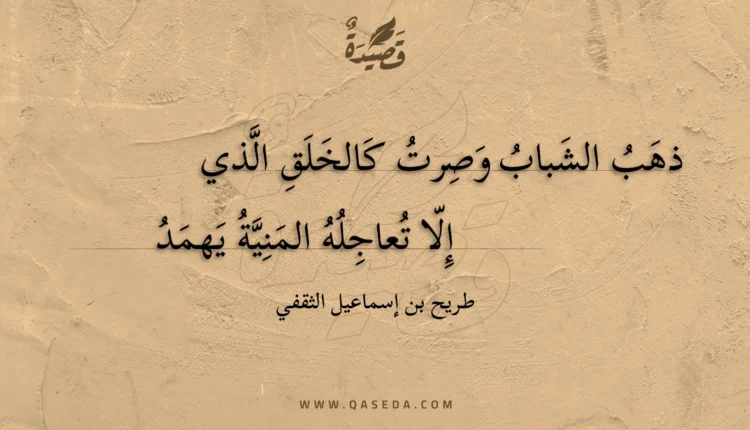 قَصِيدَةٌ
ذهَبُ الشَبابُ وَصِرتُ كَالخَلَقِ الَّذي
إِلّا تُعاجِلُهُ المَنِيَّةُ يَهمَدُ
طريح بن إسماعيل الثقفي
WWW.QASEDA.COM